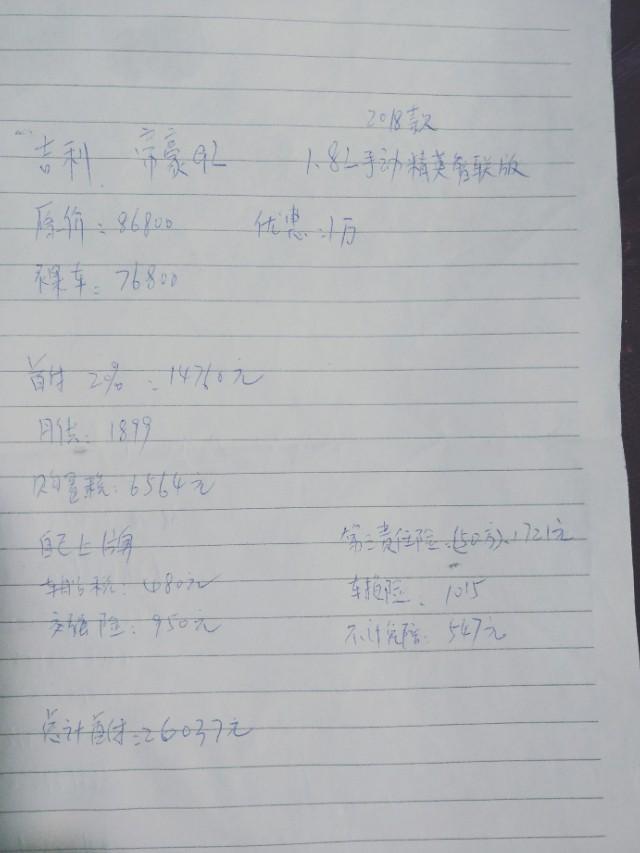 2018款
吉利 帝豪GL 1.8L手动精英智联版
原价:86800 优惠:1万
裸车:76800
首付 20% :14760元
月供:1899
购置税:6564元
自己上牌 第三责任险:(50万):1721元
车船税:480元 车损险:1015
交强险:950元 不计免赔:547元
总计首付:26037元